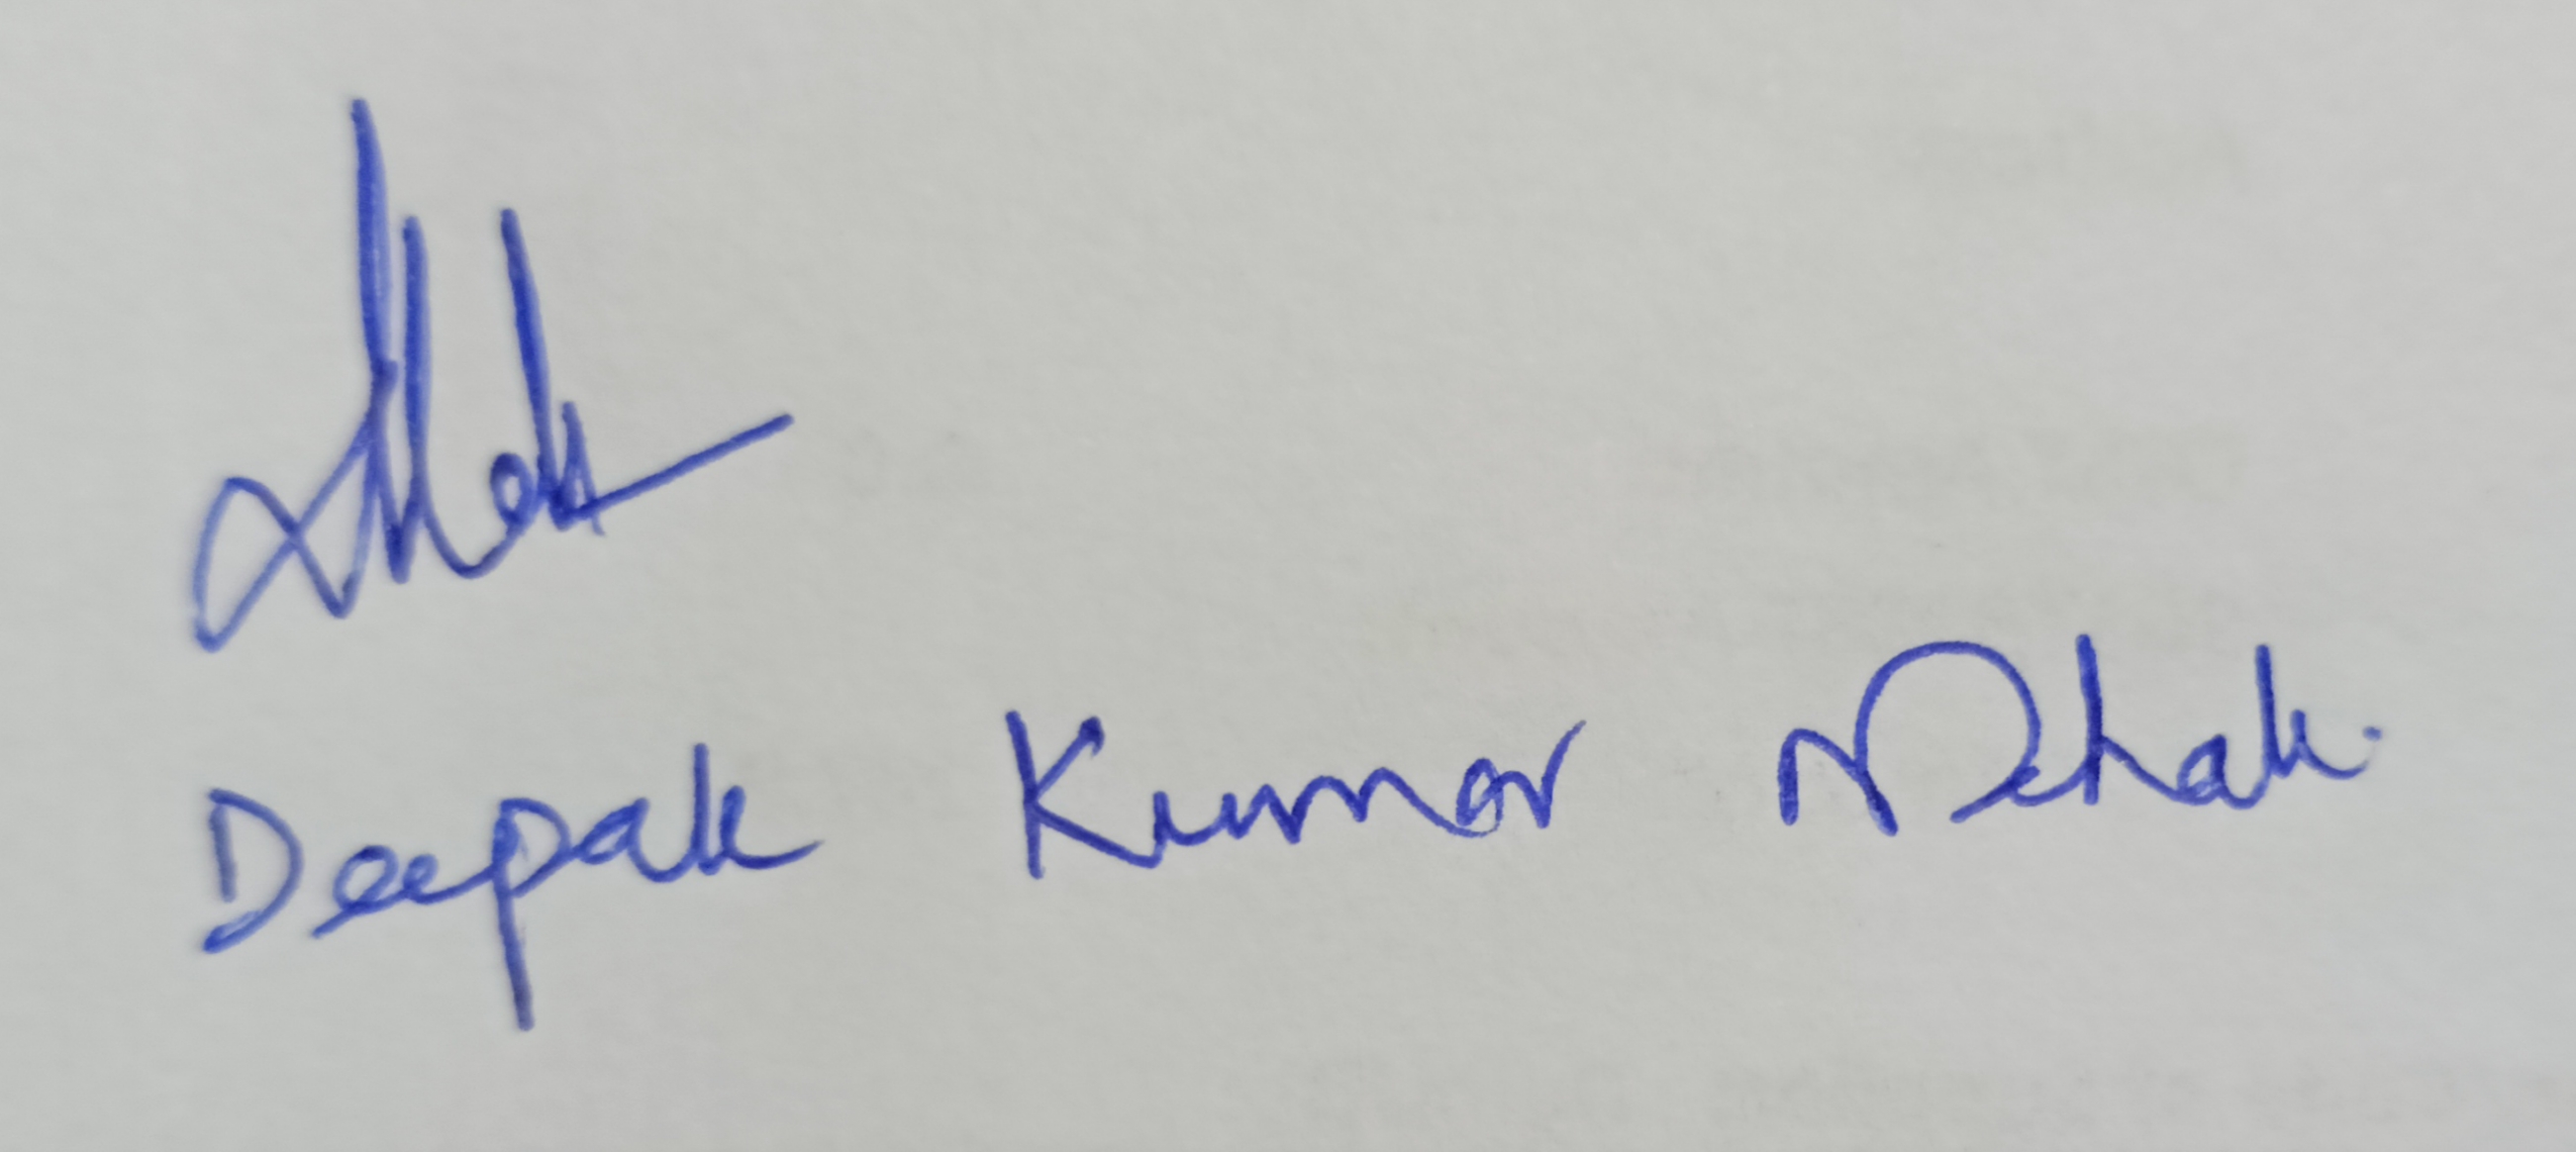 Deepak Kumar Mehak.